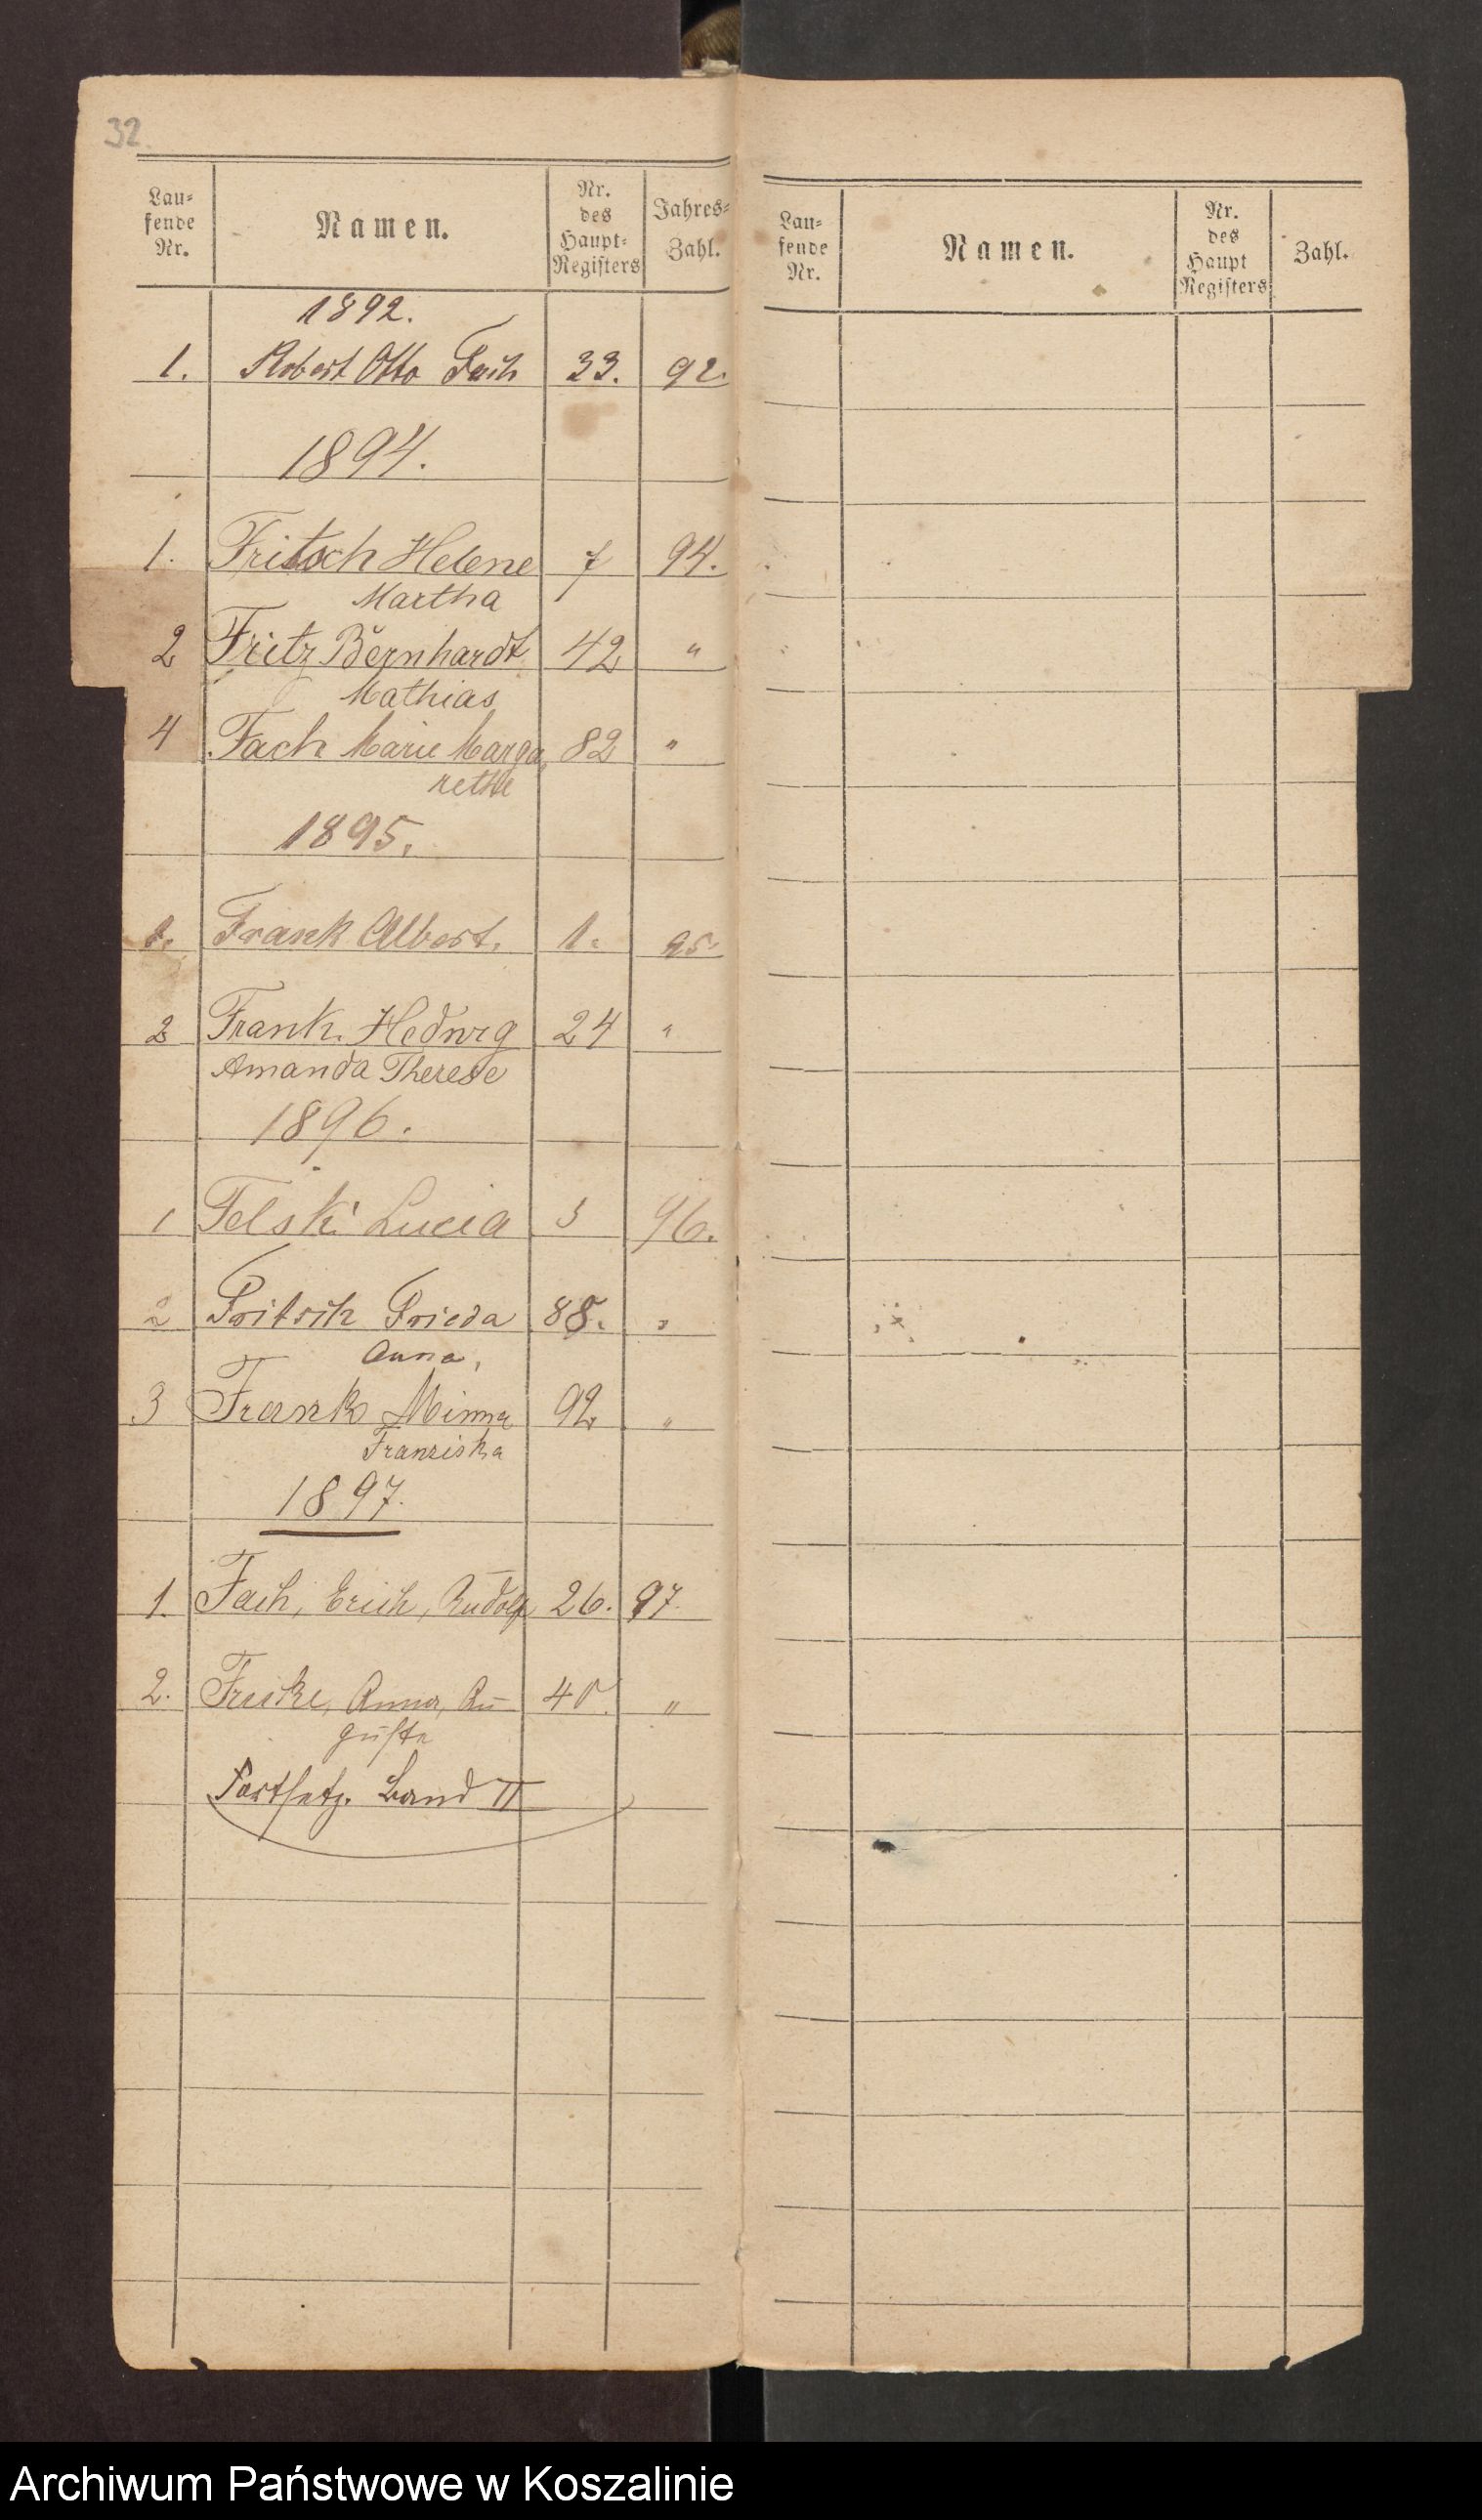 32.
Lau-
fende
Nr.
Namen.
Nr.
des
Haupt-
Registers
Jahres-
Zahl.
1892.
1. Robert Otto Fach 33. 92.
1894.
1. Fritsch Helene 7 94.
Martha
2 Fritz Bernhardt 42 "
Mathias
4 Fach Marie Marga- 82 "
rethe
1895.
1. Frank Albert. 1. 95.
2 Frank Hedwig 24 "
Amanda Therese
1896.
1 Felski Lucia 3 96.
2 Fritsch Frieda 88. "
Anna,
3 Frank Minna 92 "
Franziska
1897.
1. Fach, Erich, Rudolf 26. 97.
2. Anna, Au- "
guste
Fortsetz. Band II
Lau-
fende
Nr.
Namen.
Nr.
des
Haupt
Registers
Zahl.
Archiwum Państwowe w Koszalinie